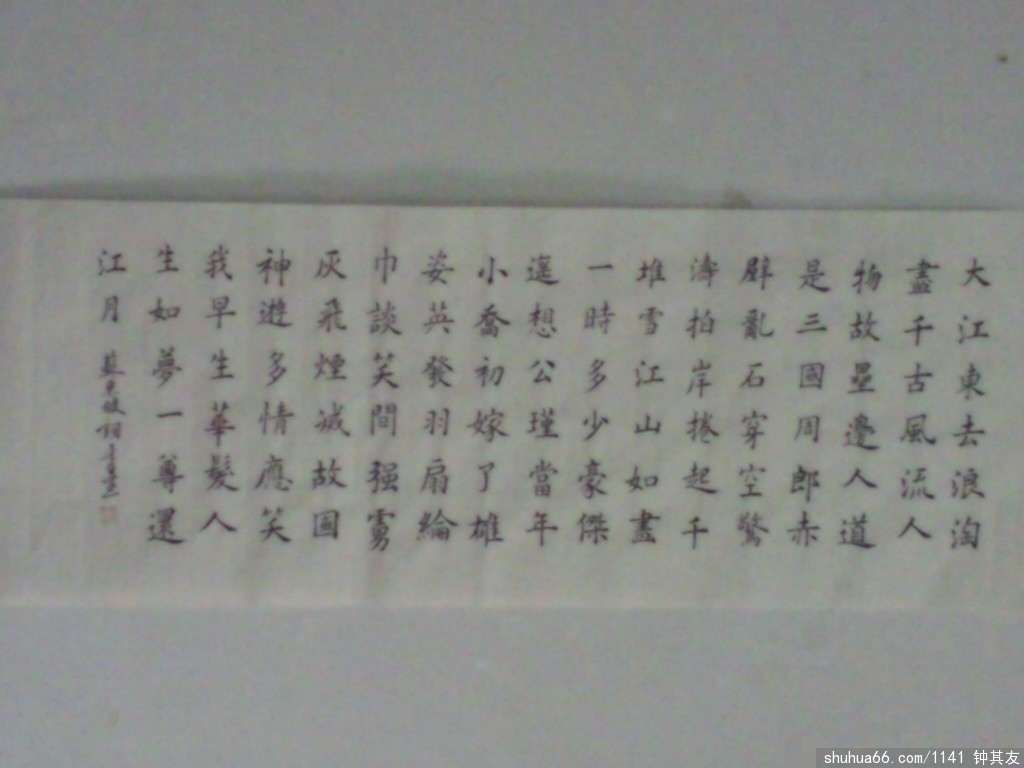 大江東去浪淘
盡千古風流人
物故壘邊人道
是三國周郎赤
壁亂石穿空驚
濤拍岸捲起千
堆雪江山如畫
一時多少豪傑
遥想公瑾當年
小喬初嫁了雄
姿英發羽扇綸
巾談笑間强虜
灰飛煙滅故國
神遊多情應笑
我早生華髮人
生如夢一尊還
江月 蘇東坡詞
shuhua66.com/1141 钟其友